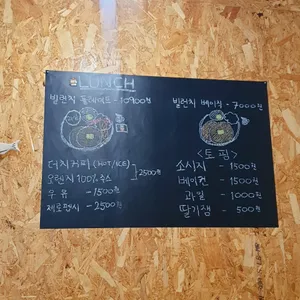 LUNCH
빌런치 플레이트 - 10900원
더치커피 (HOT/ICE)
오렌지 100% 주스
2500원
우유 - 1500원
제로펩시 - 2500원
빌런치 베이직 - 7000원
<토핑>
소시지 - 1500원
베이컨 - 1500원
과일 - 1000원
딸기잼 - 500원